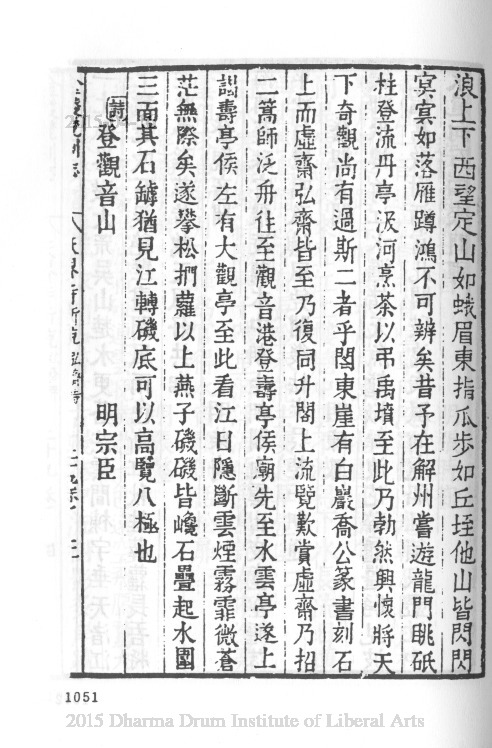 浪上下西望定山如蛾眉東指瓜步如丘垤他山皆閃閃
冥冥如落雁蹲鴻不可辨矣昔予在解州嘗遊龍門眺砥
柱登流丹亭汲河烹茶以弔禹墳至此乃勃然興懷將天
下奇觀尚有過斯二者乎閣東崖有白巖喬公篆書刻石
上而虛齋弘齋皆至乃復同升閣上流覽歎賞虛齋乃招
二篙師泛舟往至觀音港登壽亭侯廟先至水雲亭遂上
謁壽亭侯左有大觀亭至此看江日隱斷雲煙霧霏微蒼
茫無際矣遂攀松捫蘿以上燕子磯磯皆巉石疊起水圍
三面其石罅猶見江轉磯底可以高覽八極也
詩登觀音山 明宗臣
1051
2015 Dharma Drum Institute of Liberal Arts